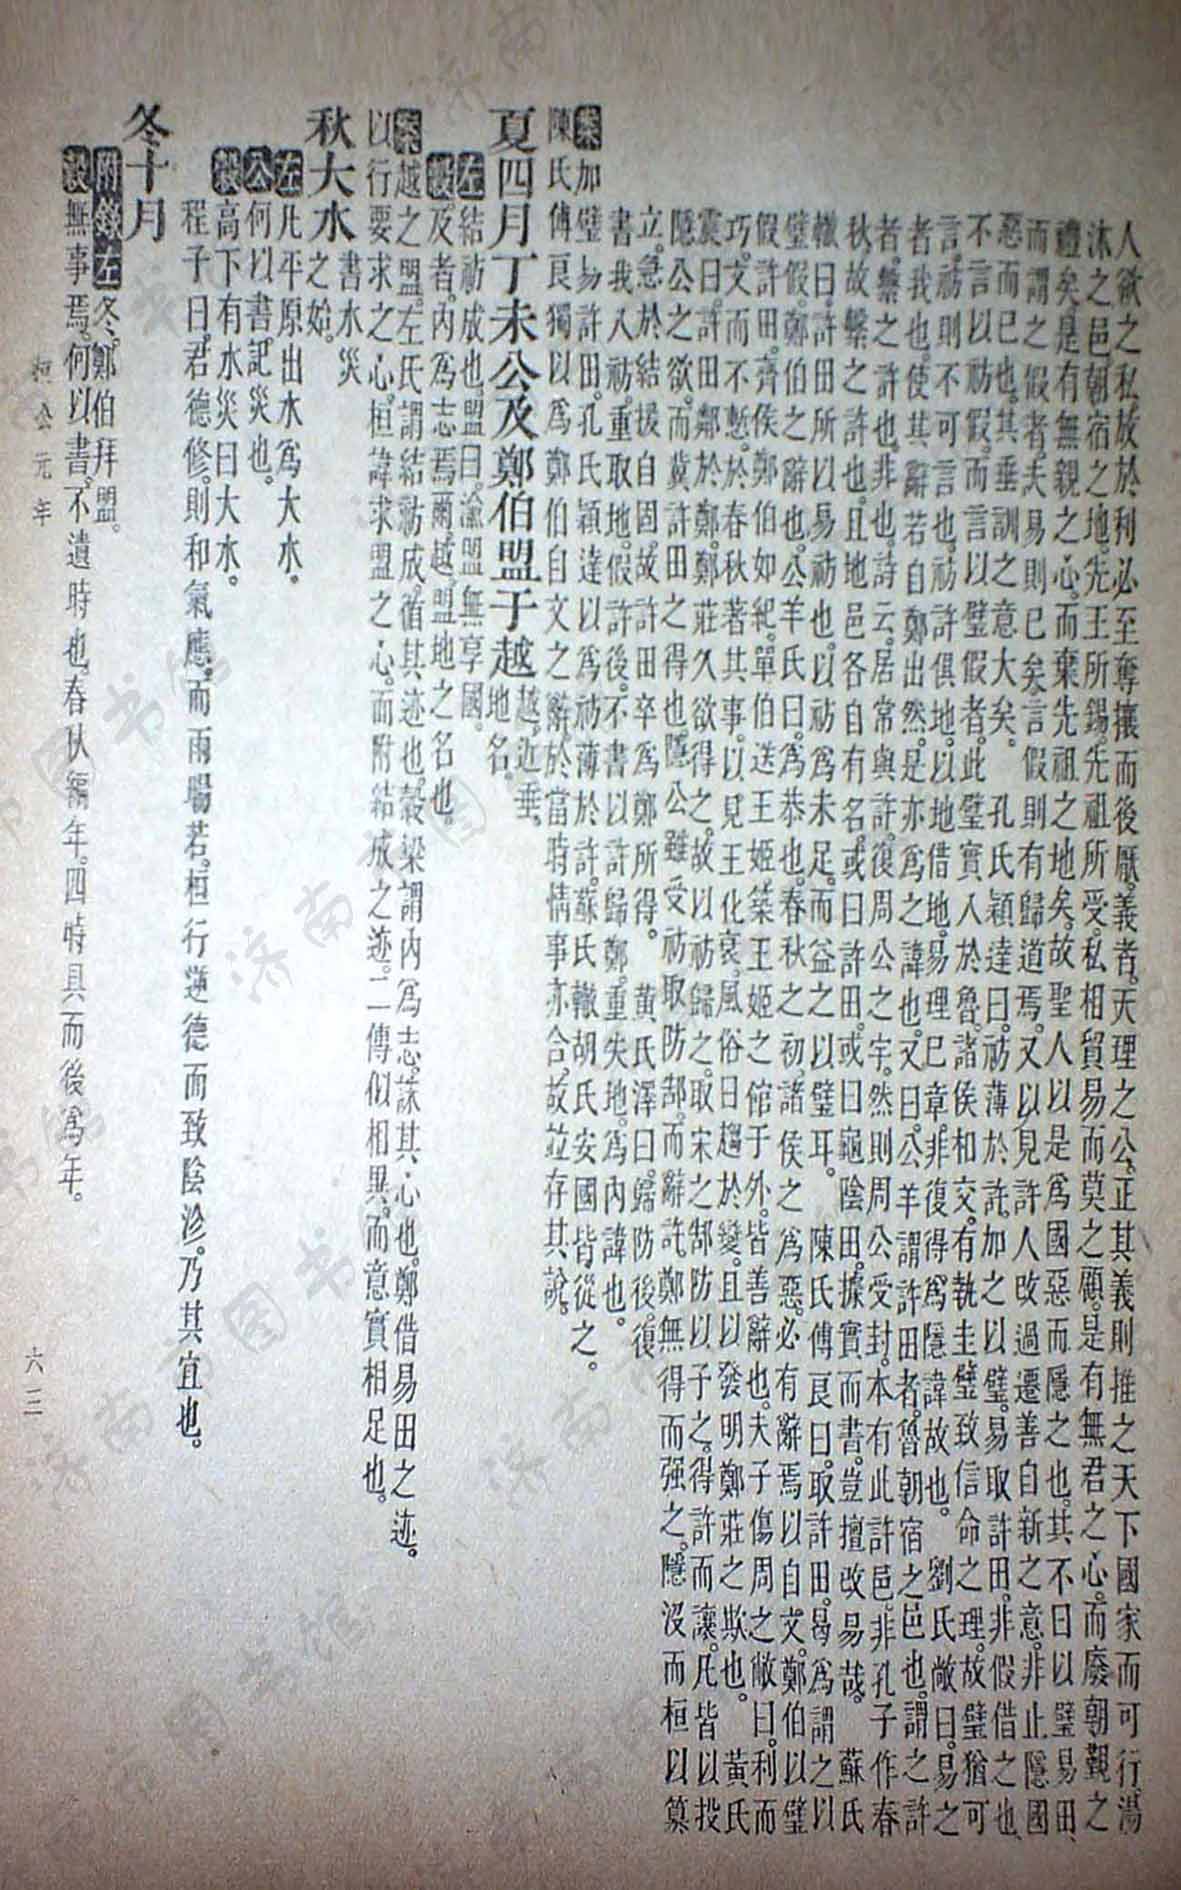 人欲之私放於利必至奪攘而後厭義者天理之公正其義則推之天下國家而可行湯
沐之邑朝宿之地先王所錫先祖所受私相貿易而莫之顧是有無君之心而廢朝覲之
禮矣是有無親之心而棄先祖之地矣故聖人以是爲國惡而隱之也其不曰以璧易田
而謂之假者夫易則已矣言假則有歸道焉又以見許人改過遷善自新之意非止隱國
惡而已也其垂訓之意大矣。孔氏穎達曰祊薄於許加之以璧易取許田非假借之也
不言以祊假而言以璧假者此璧實入於魯諸侯相交有執圭璧致信命之理故璧猶可
言祊則不可言也祊許俱地以地借地易理已章非復得爲隱諱故也。劉氏敞曰易之
者我也使其辭若自鄭出然是亦爲之諱也又曰公羊謂許田者魯朝宿之邑也謂之許
者繫之許也非也詩云居常與許復周公之宇然則周公受封本有此許邑非孔子作春
秋故繫之許也且地邑各自有名或曰許田或曰龜陰田據實而書豈擅改易哉。蘇氏
轍曰許田所以易祊也以祊爲未足而益之以璧耳。陳氏傅良曰取許田曷爲謂之以
璧假鄭伯之辭也公羊氏曰爲恭也春秋之初諸侯之爲惡必有辭焉以自文鄭伯以璧
假許田齊侯鄭伯如紀單伯送王姬築王姬之館于外皆善辭也夫子傷周之敝曰利而
巧文而不慙於春秋著其事以見王化衰風俗日趨於變且以發明鄭莊之欺也。黃氏
震曰許田鄭於鄭鄭莊久欲得之故以祊歸之取宋之郜防以子之得許而讓凡皆以投
隱公之欲而冀許田之得也隱公雖受祊取防郜而辭許鄭無得而强之隱沒而桓以篡
立急於結援自固故許田卒爲鄭所得。黃氏澤曰歸防後復
書我入祊重取地假許後不書以許歸鄭重失地爲內諱也。
案加璧易許田孔氏穎達以爲祊薄於許蘇氏轍胡氏安國皆從之。
陳氏傅良獨以爲鄭伯自文之辭於當時情事亦合故竝存其說。
夏四月丁未公及鄭伯盟于越越近垂。地名。
左結祊成也盟曰渝盟無享國。
穀及者內爲志焉爾越盟地之名也。
案越之盟左氏謂結祊成循其迹也穀梁謂內爲志誅其心也鄭借易田之迹。
以行要求之心桓諱求盟之心而附結成之迹二傳似相異而意實相足也。
秋大水書水災之始。
左凡平原出水爲大水。
公何以書記災也。
穀高下有水災曰大水。
程子曰君德修則和氣應而雨暘若桓行逆德而致陰沴乃其宜也。
冬十月
附錄左冬鄭伯拜盟。
穀無事焉何以書不遺時也春秋編年四時具而後爲年。
桓公元年
六三